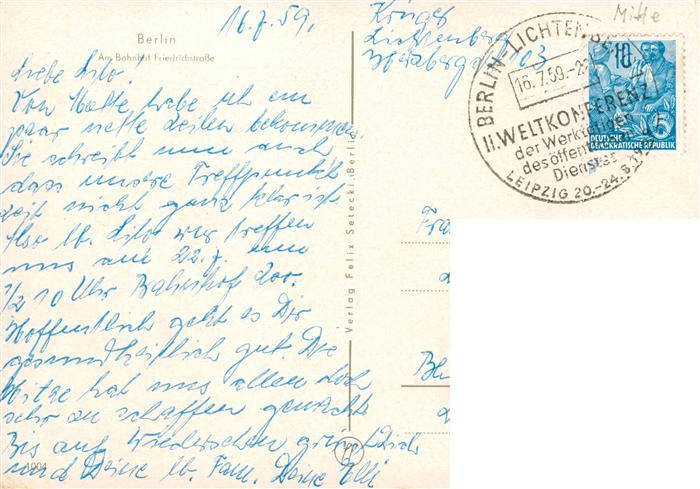 16.7.59.
Berlin
Am Bahnhof Friedrichstraße
Liebe Lilo.
Von Mette habe ich ein
paar nette Zeilen bekommen
Sie schreibt mir auch
dass unsere Treffpunkt
zeit nicht ganz klar ist
Also lb. Lilo wir treffen
uns am 22.7. um
1/2 10 Uhr Bahnhof Zoo.
Hoffentlich geht es Dir
gesundheitlich gut. Die
Hitze hat uns allen doch
sehr zu schaffen gemacht
Bis auf Wiedersehen grüßt Dich
und Deine lb. Fam. Deine Elli
1904
Verlag Felix Setecki, Berlin
Krüger
Lichtenberg
103
Mitte
BERLIN-LICHTENBE
16.7.59.-2
II. WELTKONFERENZ
der Werktätigen
des öffent
Dienstes
LEIPZIG 20.-24.5.19
10
5
DEUTSCHE
DEMOKRATISCHE REPUBLIK
Fra